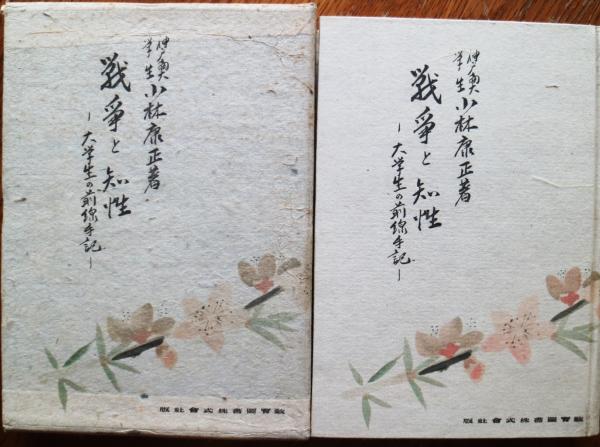 学生 小林康正著
戦争と知性
―大学生の前線手記―
教育圖書株式會社版
学生 小林康正著
戦争と知性
―大学生の前線手記―
教育圖書株式會社版